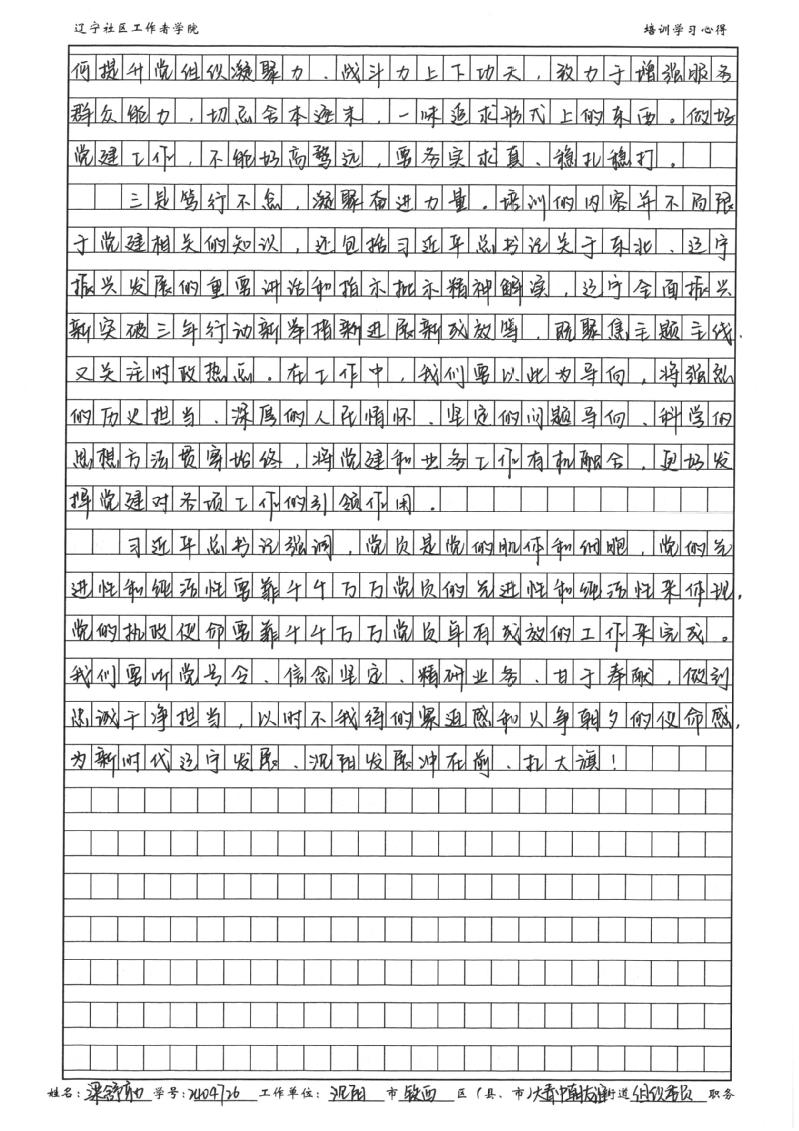 辽宁社区工作者学院 培训学习心得
何提升党组织凝聚力、战斗力上下功夫，致力于增强服务
群众能力，切忌舍本逐末，一味追求形式上的东西。做好
党建工作，不能好高骛远，要务实求真、稳扎稳打。
三是笃行不怠，凝聚奋进力量。培训的内容并不局限
于党建相关的知识，还包括习近平总书记关于东北、辽宁
振兴发展的重要讲话和指示批示精神解读，辽宁全面振兴
新突破三年行动新举措新进展新成效等，既聚焦主题主线，
又关注时政热点。在工作中，我们要以此为导向，将强烈
的历史担当、深厚的人民情怀、坚定的问题导向、科学的
思想方法贯穿始终，将党建和业务工作有机融合，更好发
挥党建对各项工作的引领作用。
习近平总书记强调，党员是党的肌体和细胞，党的先
进性和纯洁性要靠千千万万党员的先进性和纯洁性来体现，
党的执政使命要靠千千万万党员卓有成效的工作来完成。
我们要听党号令、信念坚定、精研业务、甘于奉献，做到
忠诚干净担当，以时不我待的紧迫感和只争朝夕的使命感，
为新时代辽宁发展、沈阳发展冲在前、扛大旗！
姓名： 学号：2404726 工作单位：沈阳 市 铁西 区（县、市） 街道 组织委员 职务